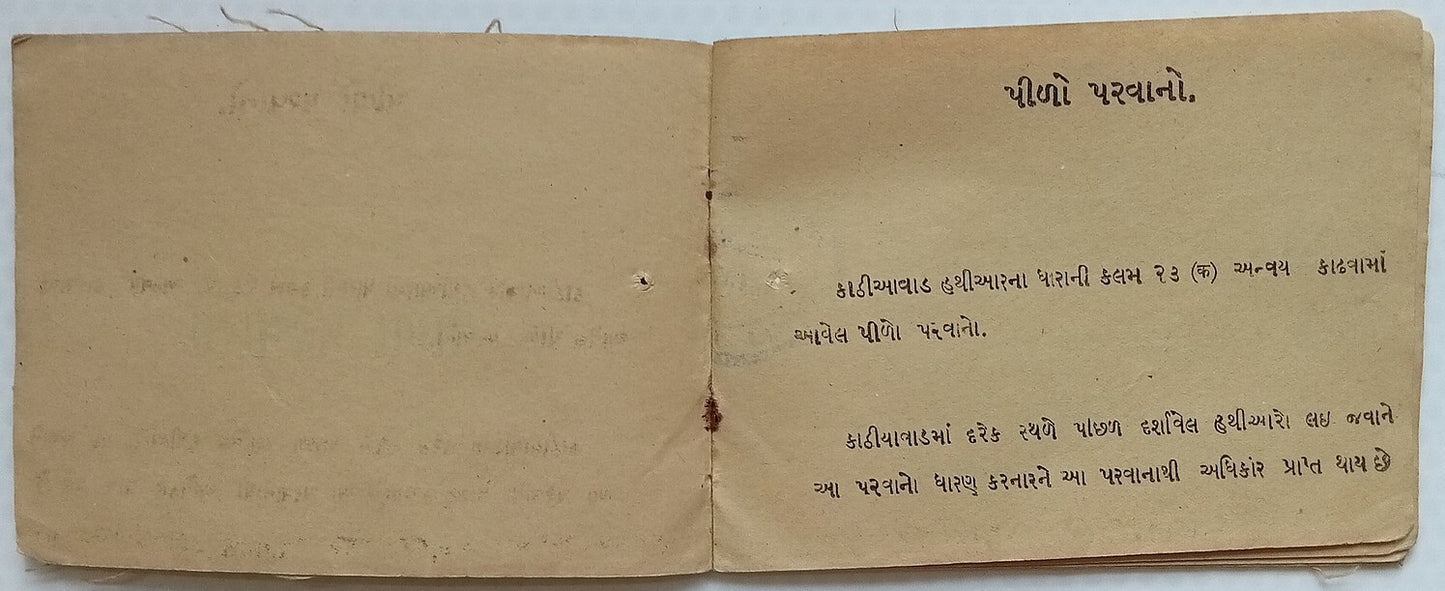 પીળો પરવાનો.
કાઠીઆવાડ હથીઆરના ધારાની કલમ ૨૩ (ક) અન્વય કાઢવામાં
આવેલ પીળો પરવાનો.
કાઠીયાવાડમાં દરેક સ્થળે પાછળ દર્શાવેલ હથીઆરો લઇ જવાને
આ પરવાનો ધારણ કરનારને આ પરવાનાથી અધિકાર પ્રાપ્ત થાય છે